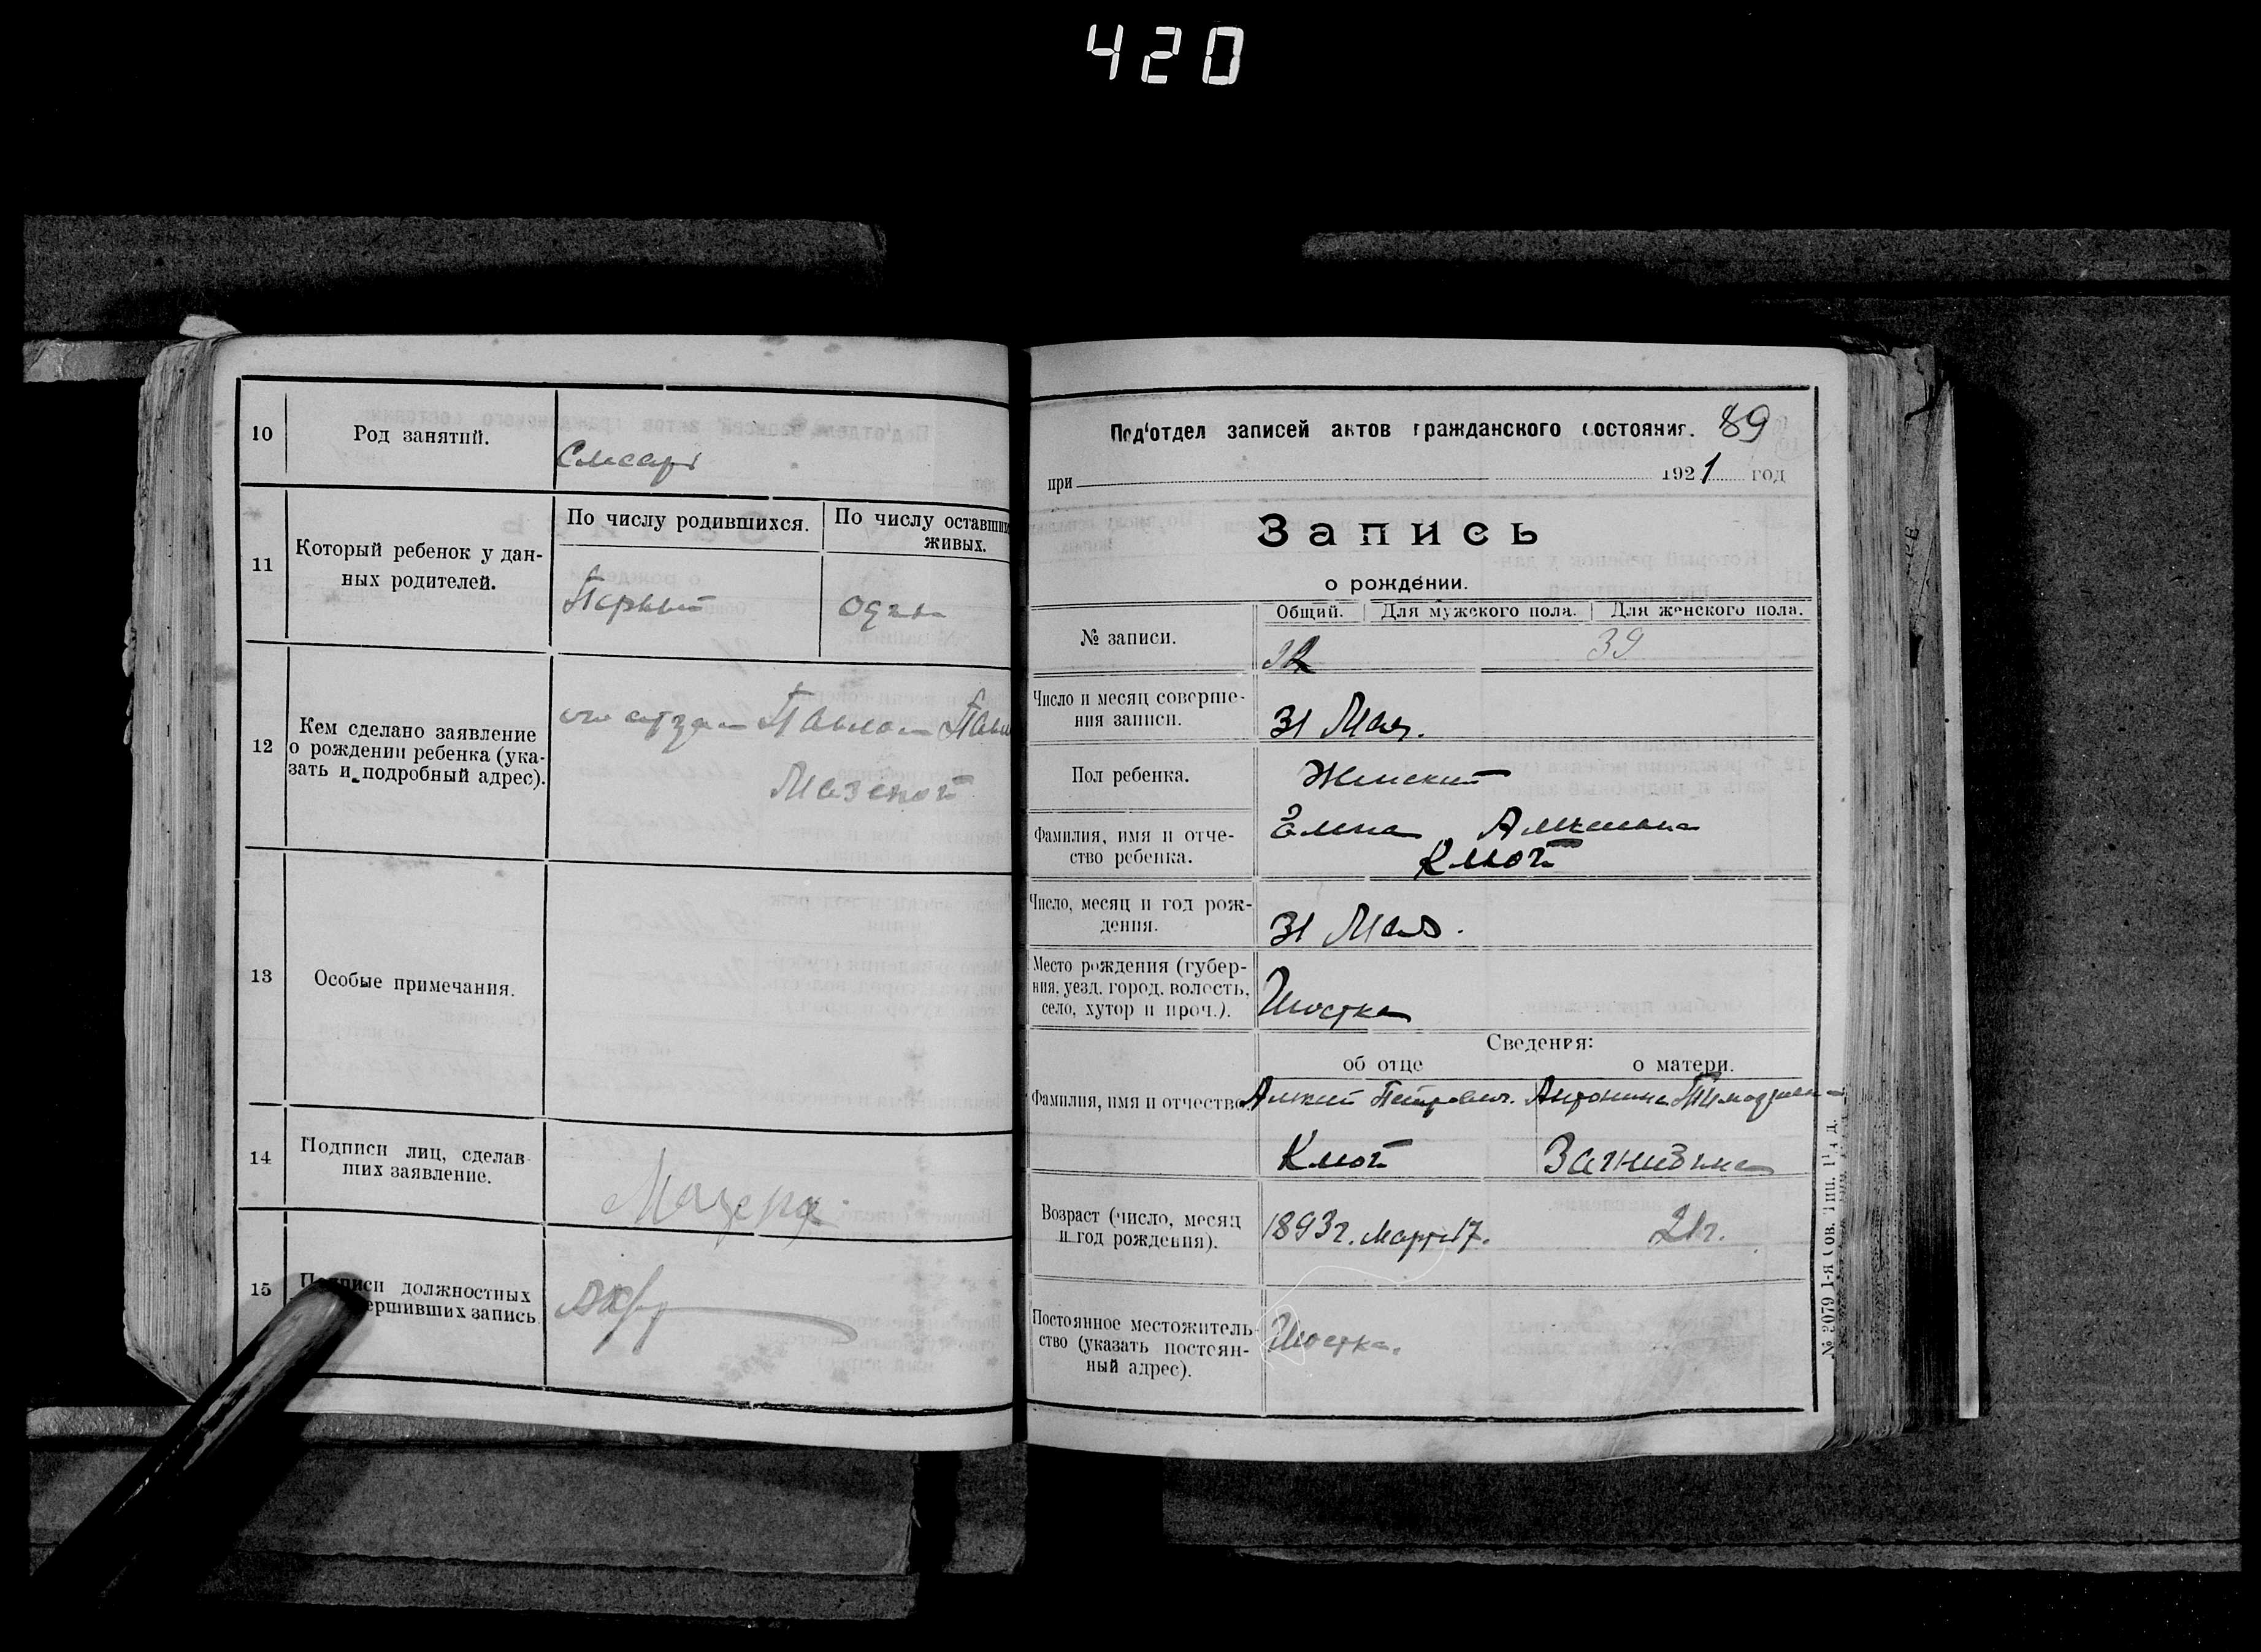 420
10
Род занятий.
Слесарь
11
Который ребенок у дан-
ных родителей.
По числу родившихся.
По числу оставши
живых.
Первый
один
12
Кем сделано заявление
о рождении ребенка (ука-
зать и подробный адрес).
отцом Павлом Павл
Мазепой
13
Особые примечания.
14
Подписи лиц, сделав-
ших заявление.
Мазепа
15
должностных
ершивших запись
Под'отдел записей актов гражданского состояния.
89
при 1921 год
Запись
о рождении.
Общий. Для мужского пола. Для женского пола.
№ записи.
39
Число и месяц соверше-
ния записи.
31 Мая.
Пол ребенка.
Женский
Фамилия, имя и отче-
ство ребенка.
Клюй
Число, месяц и год рож-
дения.
31 Мая.
Место рождения (губер-
ния, уезд, город, волость,
село, хутор и проч.).
Шостка
Сведения:
об отце о матери.
Фамилия, имя и отчество.
Петрович. Антонина
Клюй
Возраст (число, месяц
и год рождения).
1893г. Март 17.
21г.
Постоянное местожитель-
ство (указать постоян-
ный адрес).
Шостка.